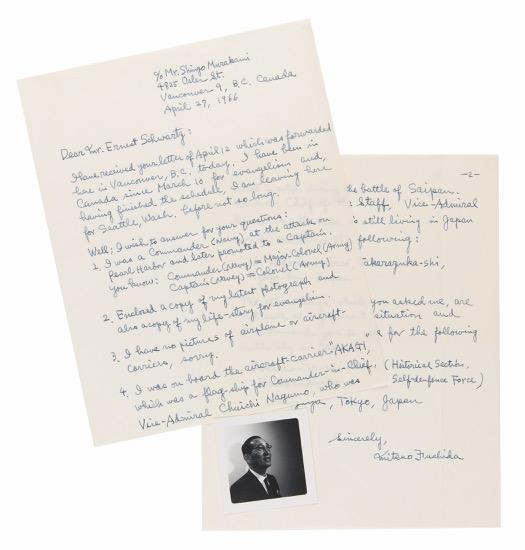 c/o Mr. Shingo Murakami
4825 Osler St.
Vancouver 9, B.C. Canada
April 27, 1966
Dear Mr. Ernest Schwartz:
I have received your letter of April 12 which was forwarded
here in Vancouver, B.C. today. I have been in
Canada since March 10 for evangelism and,
having finished the schedule, I am leaving here
for Seattle, Wash. before not so long.
Well, I wish to answer for your questions:
1. I was a Commander (Navy) at the attack on
Pearl Harbor and later promoted to a Captain.
You know: Commander (Navy) = Major-Colonel (Army)
Captain (Navy) = Colonel (Army)
2. Enclosed a copy of my latest photograph and
also a copy of my life-story for evangelism.
3. I have no pictures of airplane or aircraft-
carriers, sorry.
4. I was on board the aircraft-carrier "AKAGI,"
which was a flag-ship for Commander-in-Chief,
Vice-Admiral Chuichi Nagumo, who was
-2-
the battle of Saipan.
Staff, Vice-Admiral
is still living in Japan
following:
Takarazuka-shi,
you asked me, are
situation and
for the following
(Historical Section,
Self-defence Force)
Tokyo, Japan
Sincerely,
Mitsuo Fuchida